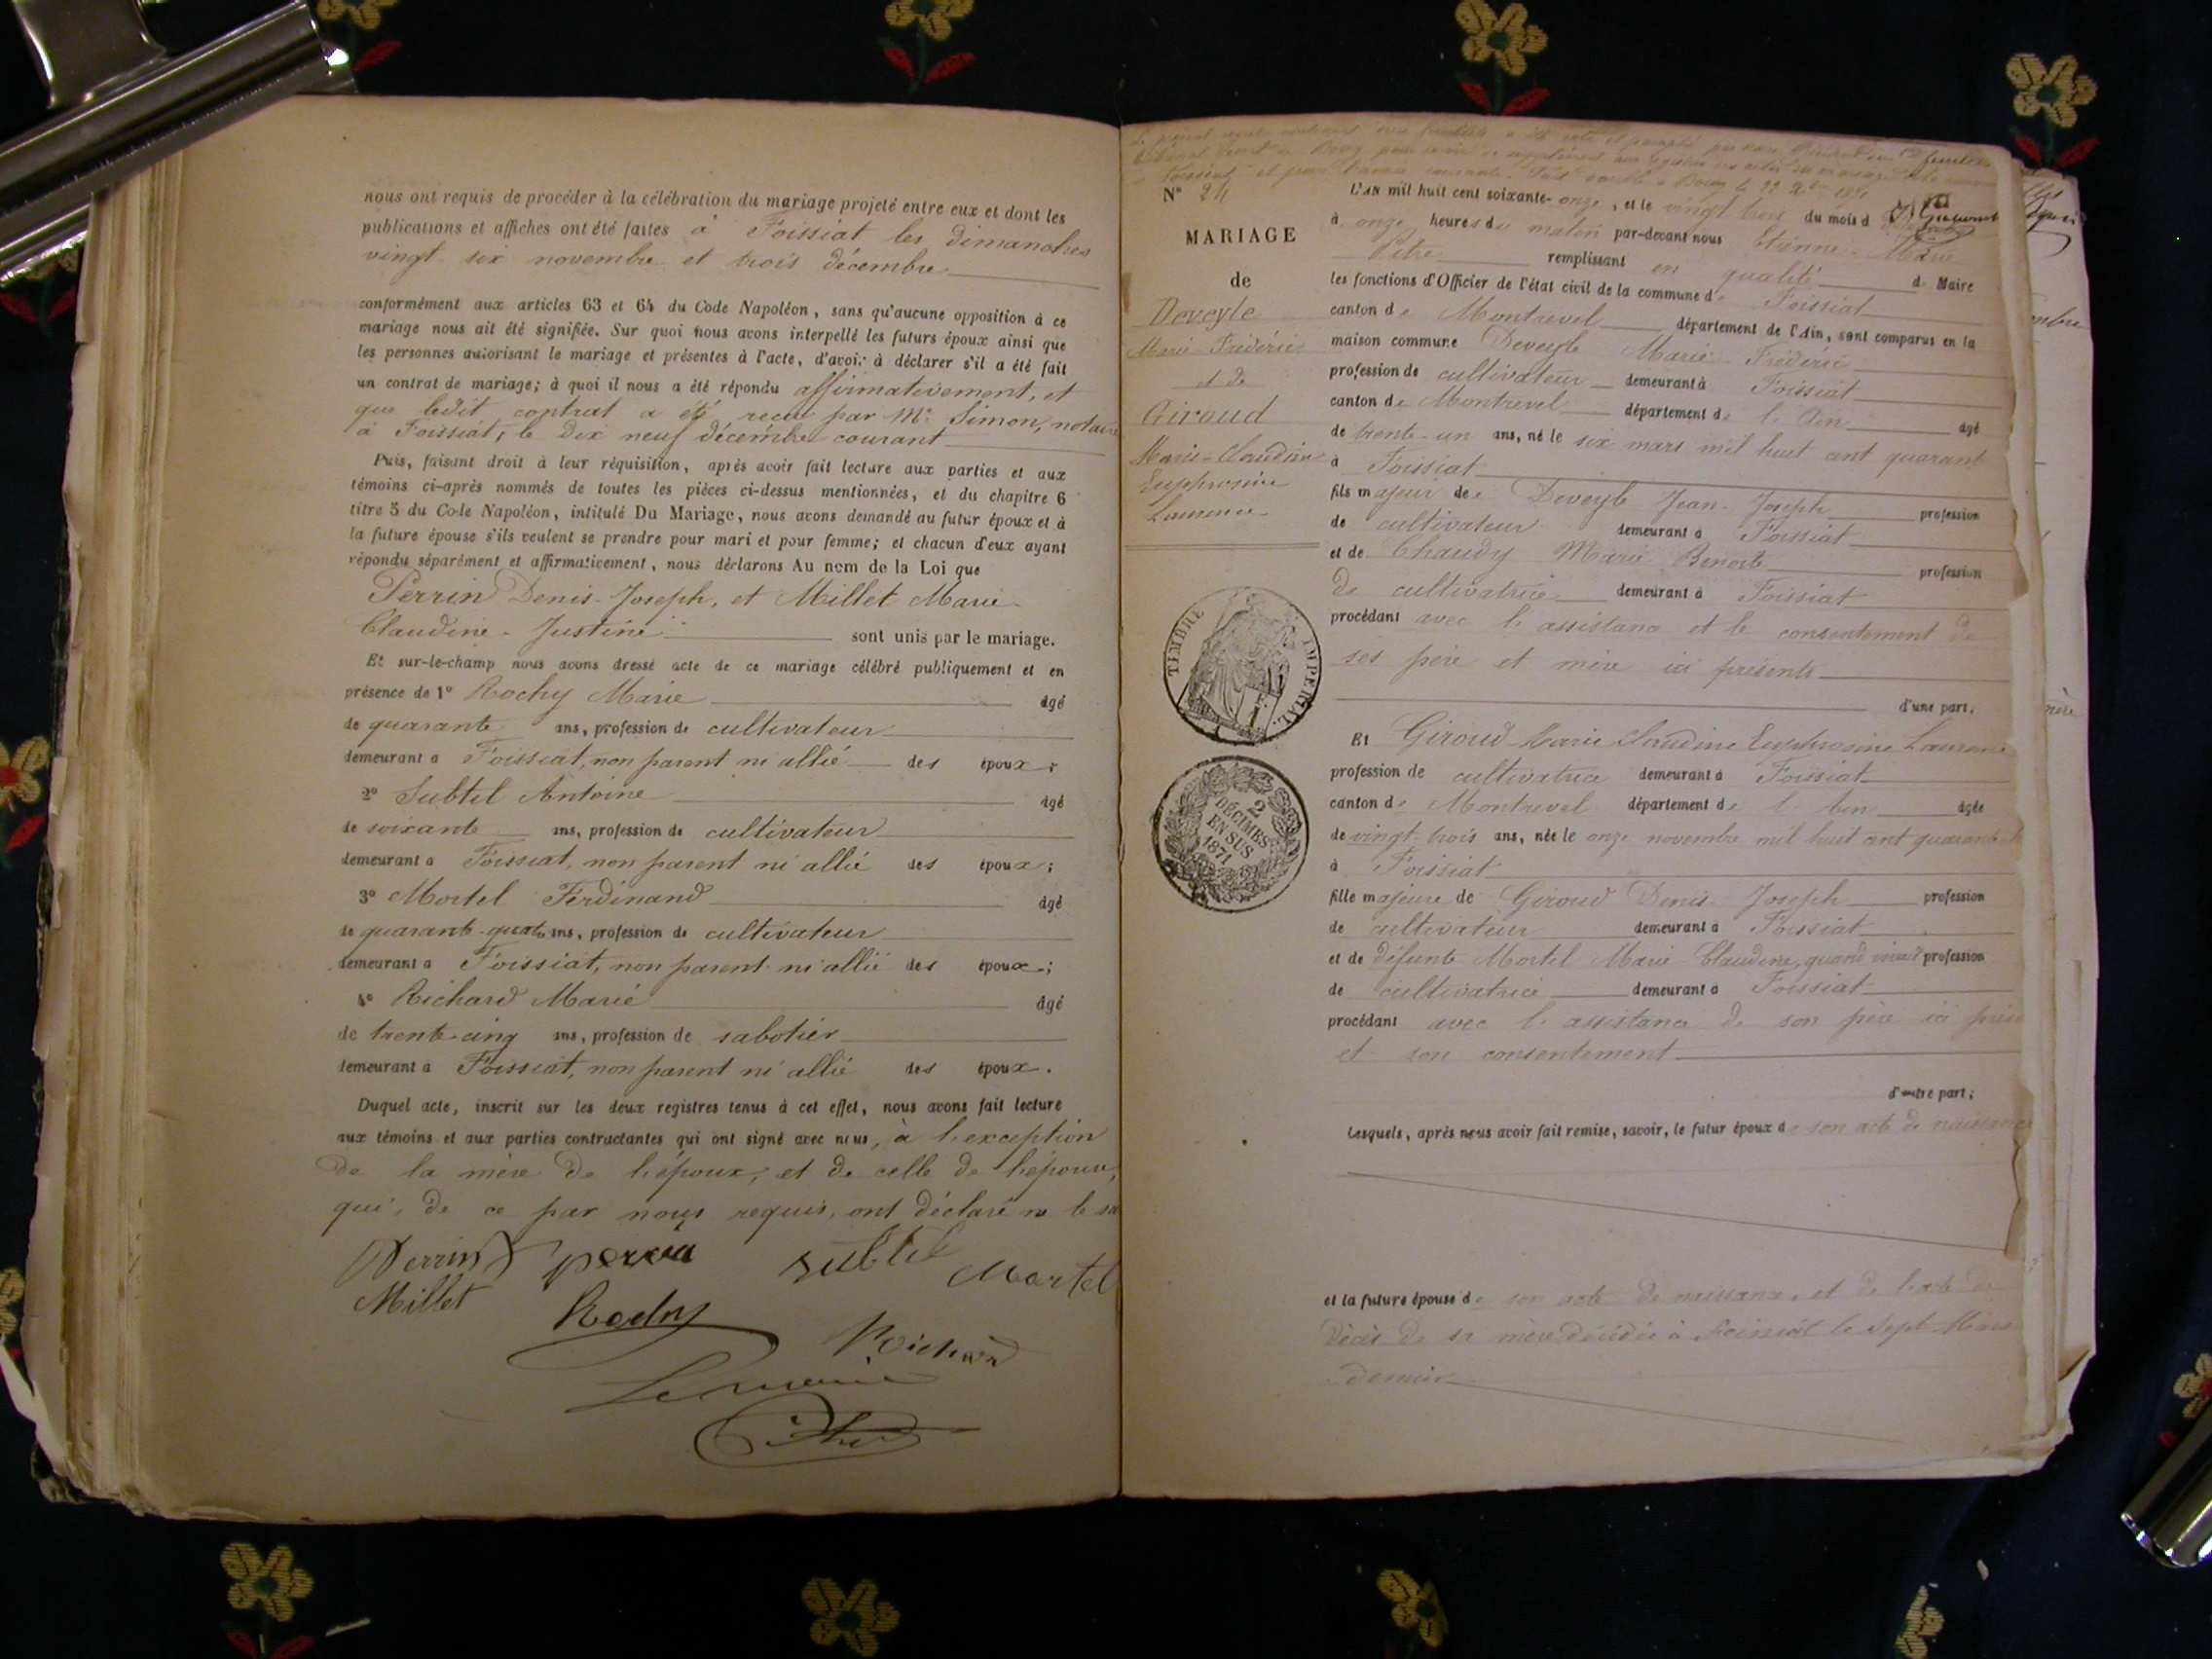 nous ont requis de procéder à la célébration du mariage projeté entre eux et dont les
publications et affiches ont été faites à Foissiat les dimanches
vingt-six novembre et trois décembre
conformément aux articles 63 et 64 du Code Napoléon, sans qu'aucune opposition à ce
mariage nous ait été signifiée. Sur quoi nous avons interpellé les futurs époux ainsi que
les personnes autorisant le mariage et présentes à l'acte, d'avoir à déclarer s'il a été fait
un contrat de mariage; à quoi il nous a été répondu affirmativement, et
que ledit contrat a été reçu par Me Simon, notaire
à Foissiat, le dix neuf décembre courant
Puis, faisant droit à leur réquisition, après avoir fait lecture aux parties et aux
témoins ci-après nommés de toutes les pièces ci-dessus mentionnées, et du chapitre 6
titre 5 du Code Napoléon, intitulé Du Mariage, nous avons demandé au futur époux et à
la future épouse s'ils veulent se prendre pour mari et pour femme; et chacun d'eux ayant
répondu séparément et affirmativement, nous déclarons Au nom de la Loi que
Perrin Denis-Joseph, et Millet Marie-
Claudine-Justine sont unis par le mariage.
Et sur-le-champ nous avons dressé acte de ce mariage célébré publiquement et en
présence de 1° Rochy Marie âgé
de quarante ans, profession de cultivateur
demeurant à Foissiat, non parent ni allié des époux;
2° Subtil Antoine âgé
de soixante ans, profession de cultivateur
demeurant à Foissiat, non parent ni allié des époux;
3° Mortel Ferdinand âgé
de quarante-quatre ans, profession de cultivateur
demeurant à Foissiat, non parent ni allié des époux;
4° Richard Marie âgé
de trente-cinq ans, profession de sabotier
demeurant à Foissiat, non parent ni allié des époux.
Duquel acte, inscrit sur les deux registres tenus à cet effet, nous avons fait lecture
aux témoins et aux parties contractantes qui ont signé avec nous, à l'exception
de la mère de l'époux, et de celle de l'épouse,
qui, de ce par nous requis, ont déclaré ne le sa
Perrin perrin subtil Martel
Millet Rochy Richard
Le maire
N° 24
MARIAGE
de
Deveyle
Marie-Frédéric
et de
Giroud
Marie-Claudine
Euphrosine
Laurence
TIMBRE IMPERIAL
2
DÉCIMES
EN SUS
1871
L'AN mil huit cent soixante-onze, et le vingt trois du mois d
à onze heures du matin par-devant nous Etienne-Marie
Pitre remplissant en qualité de Maire
les fonctions d'Officier de l'état civil de la commune de Foissiat
canton de Montrevel département de l'Ain, sont comparus en la
maison commune Deveyle Marie-Frédéric
profession de cultivateur demeurant à Foissiat
canton de Montrevel département de l'Ain âgé
de trente-un ans, né le six mars mil huit cent quarant
à Foissiat
fils majeur de Deveyle Jean-Joseph profession
de cultivateur demeurant à Foissiat
et de Chaudy Marie Benoite profession
de cultivatrice demeurant à Foissiat
procédant avec l'assistance et le consentement de
ses père et mère ici présents
d'une part,
Et Giroud Marie Claudine Euphrosine Laurence
profession de cultivatrice demeurant à Foissiat
canton de Montrevel département de l'Ain âgée
de vingt-trois ans, née le onze novembre mil huit cent quarante
à Foissiat
fille majeure de Giroud Denis-Joseph profession
de cultivateur demeurant à Foissiat
et de défunte Mortel Marie-Claudine, quand vivait profession
de cultivatrice demeurant à Foissiat
procédant avec l'assistance de son père ici prés
et son consentement
d'autre part;
Lesquels, après nous avoir fait remise, savoir, le futur époux de son acte de naissance
et la future épouse de son acte de naissance, et de l'acte de
décès de sa mère décédée à Foissiat le sept Mars
dernier